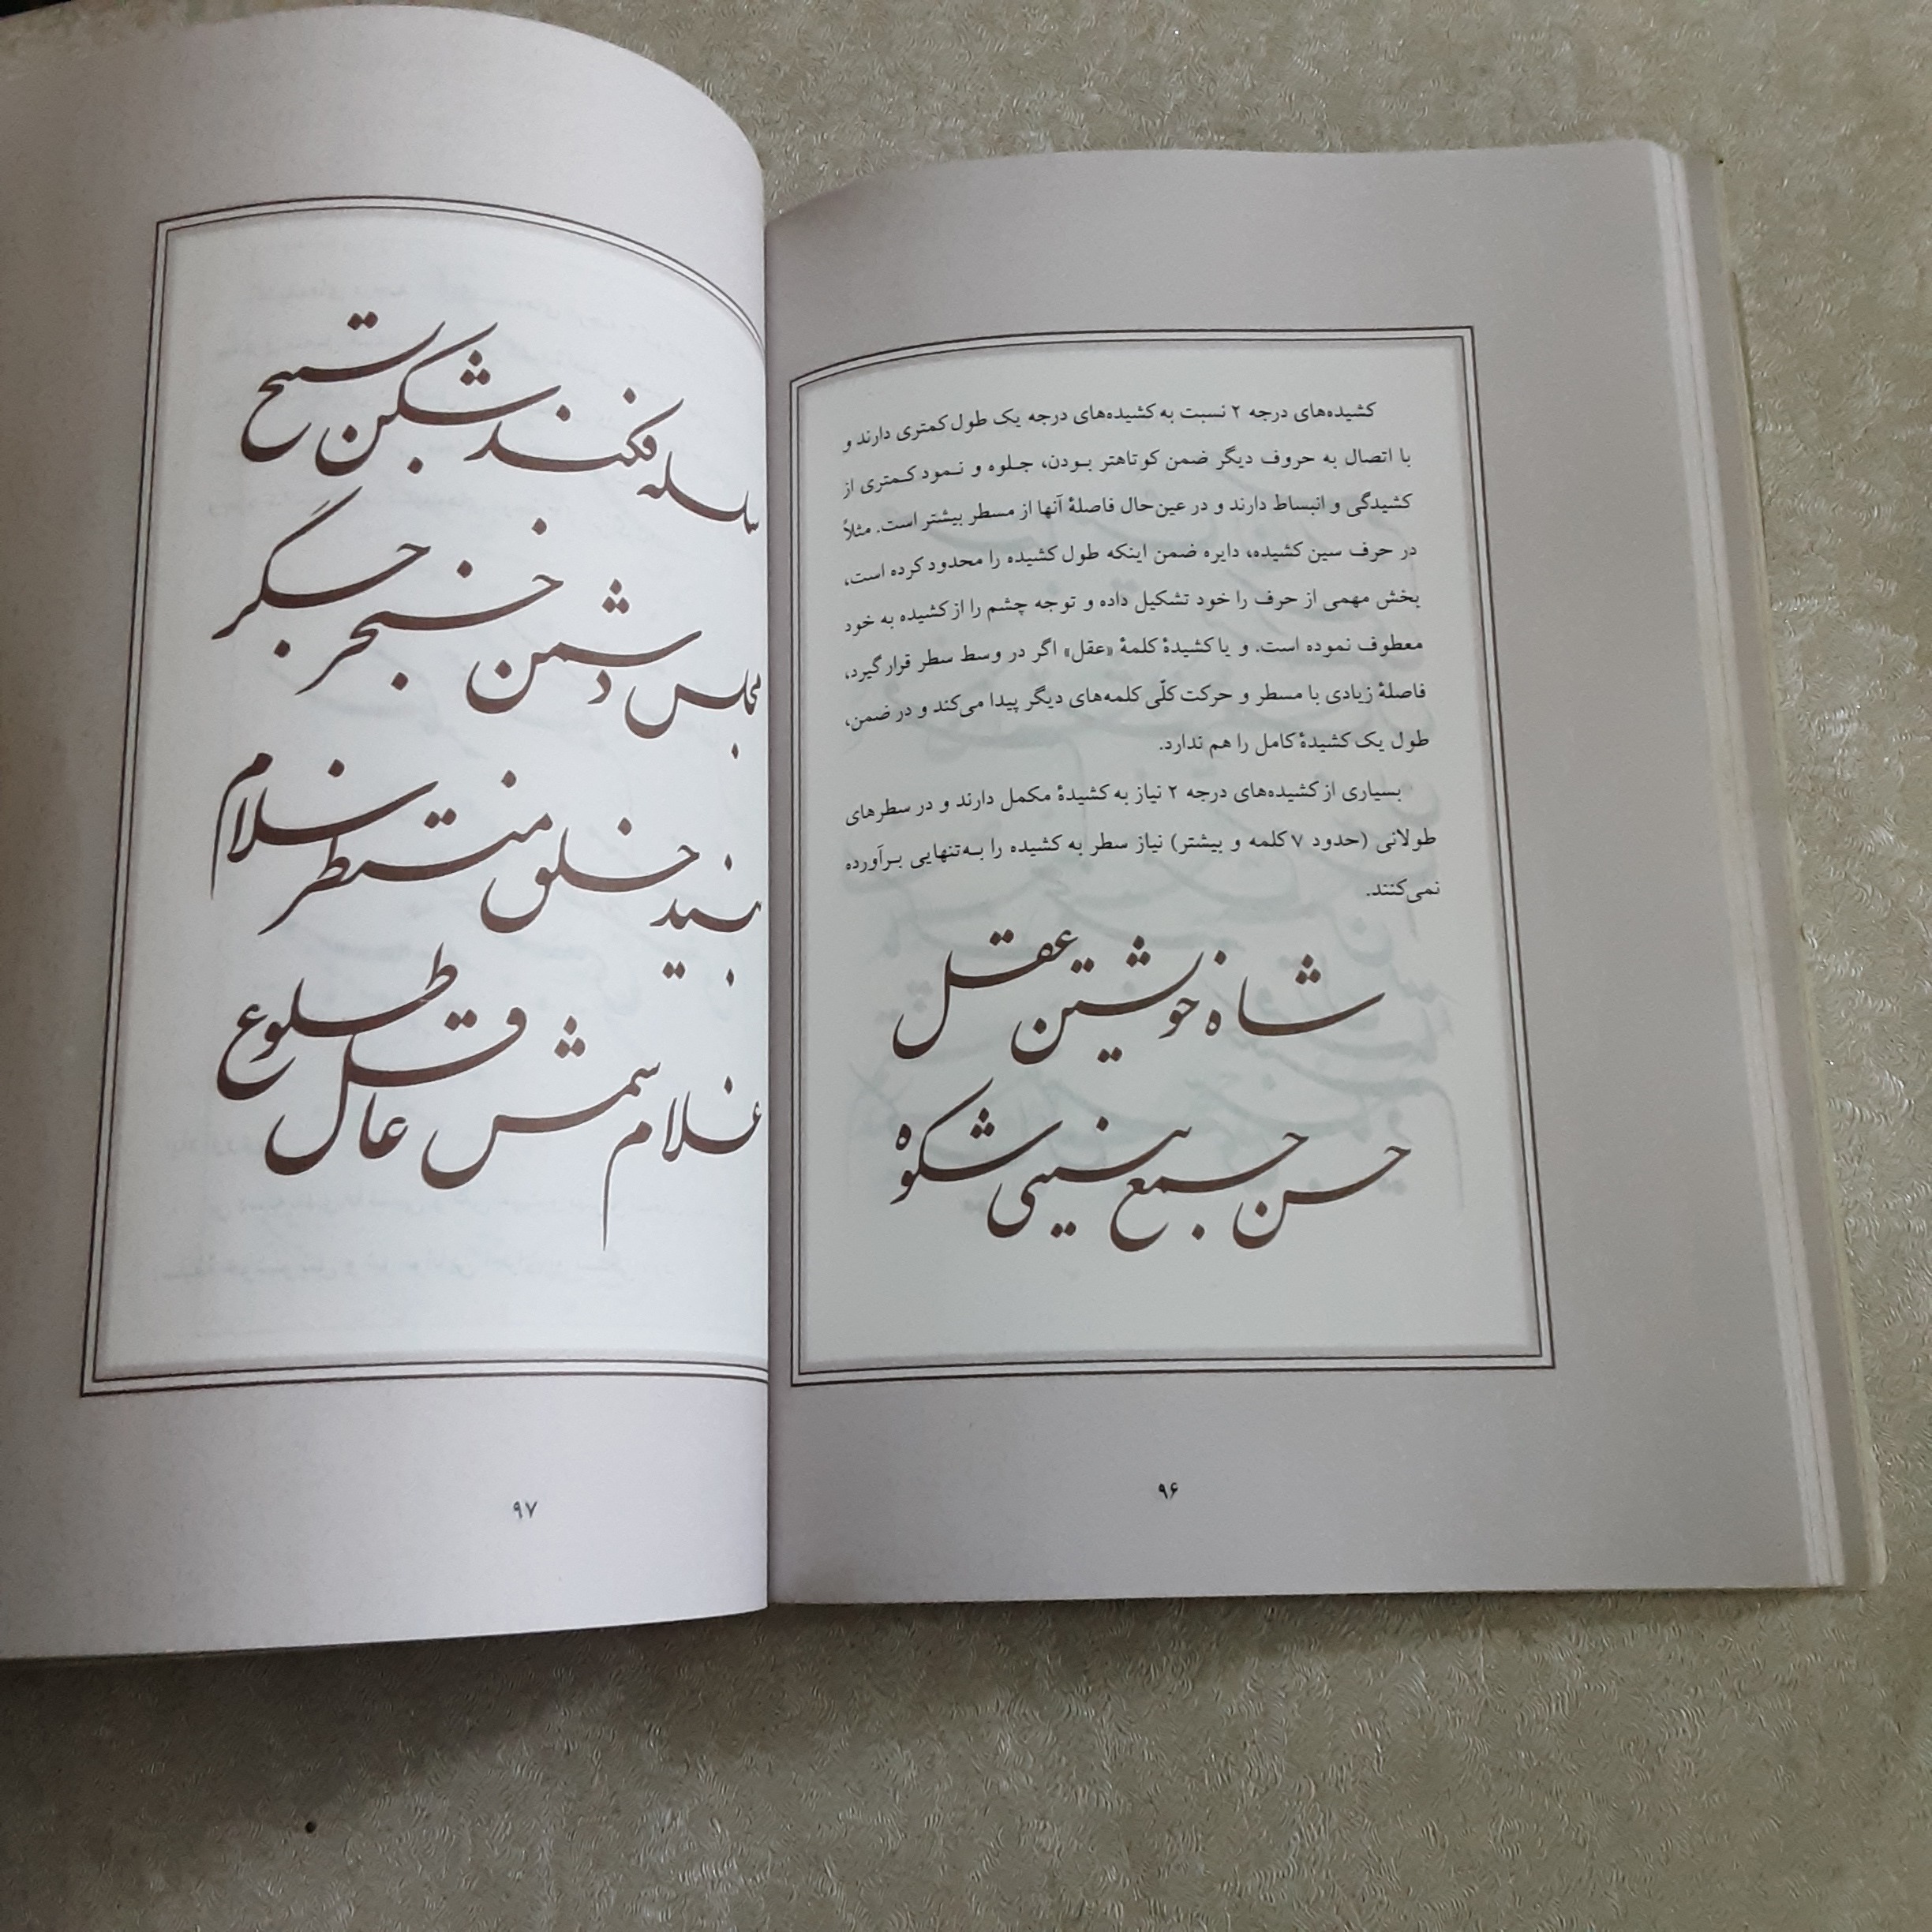 کشیده‌های درجه ۲ نسبت به کشیده‌های درجه یک طول کمتری دارند و
با اتصال به حروف دیگر ضمن کوتاهتر بودن، جلوه و نمود کمتری از
کشیدگی و انبساط دارند و در عین‌حال فاصلهٔ آنها از مسطر بیشتر است. مثلاً
در حرف سین کشیده، دایره ضمن اینکه طول کشیده را محدود کرده است،
بخش مهمی از حرف را خود تشکیل داده و توجه چشم را از کشیده به خود
معطوف نموده است. و یا کشیدهٔ کلمهٔ «عقل» اگر در وسط سطر قرار گیرد،
فاصلهٔ زیادی با مسطر و حرکت کلّی کلمه‌های دیگر پیدا می‌کند و در ضمن،
طول یک کشیدهٔ کامل را هم ندارد.
بسیاری از کشیده‌های درجه ۲ نیاز به کشیدهٔ مکمل دارند و در سطرهای
طولانی (حدود ۷ کلمه و بیشتر) نیاز سطر به کشیده را به‌تنهایی برآورده
نمی‌کنند.
شاه خویشتن عقل
حسن جمع بینی شکوه
۹۶
سلسله فکند شکن تسبیح
مجلس دشمن خنجر جگر
خلق منتظر سلام
غلام شمس عاقل طلوع
۹۷